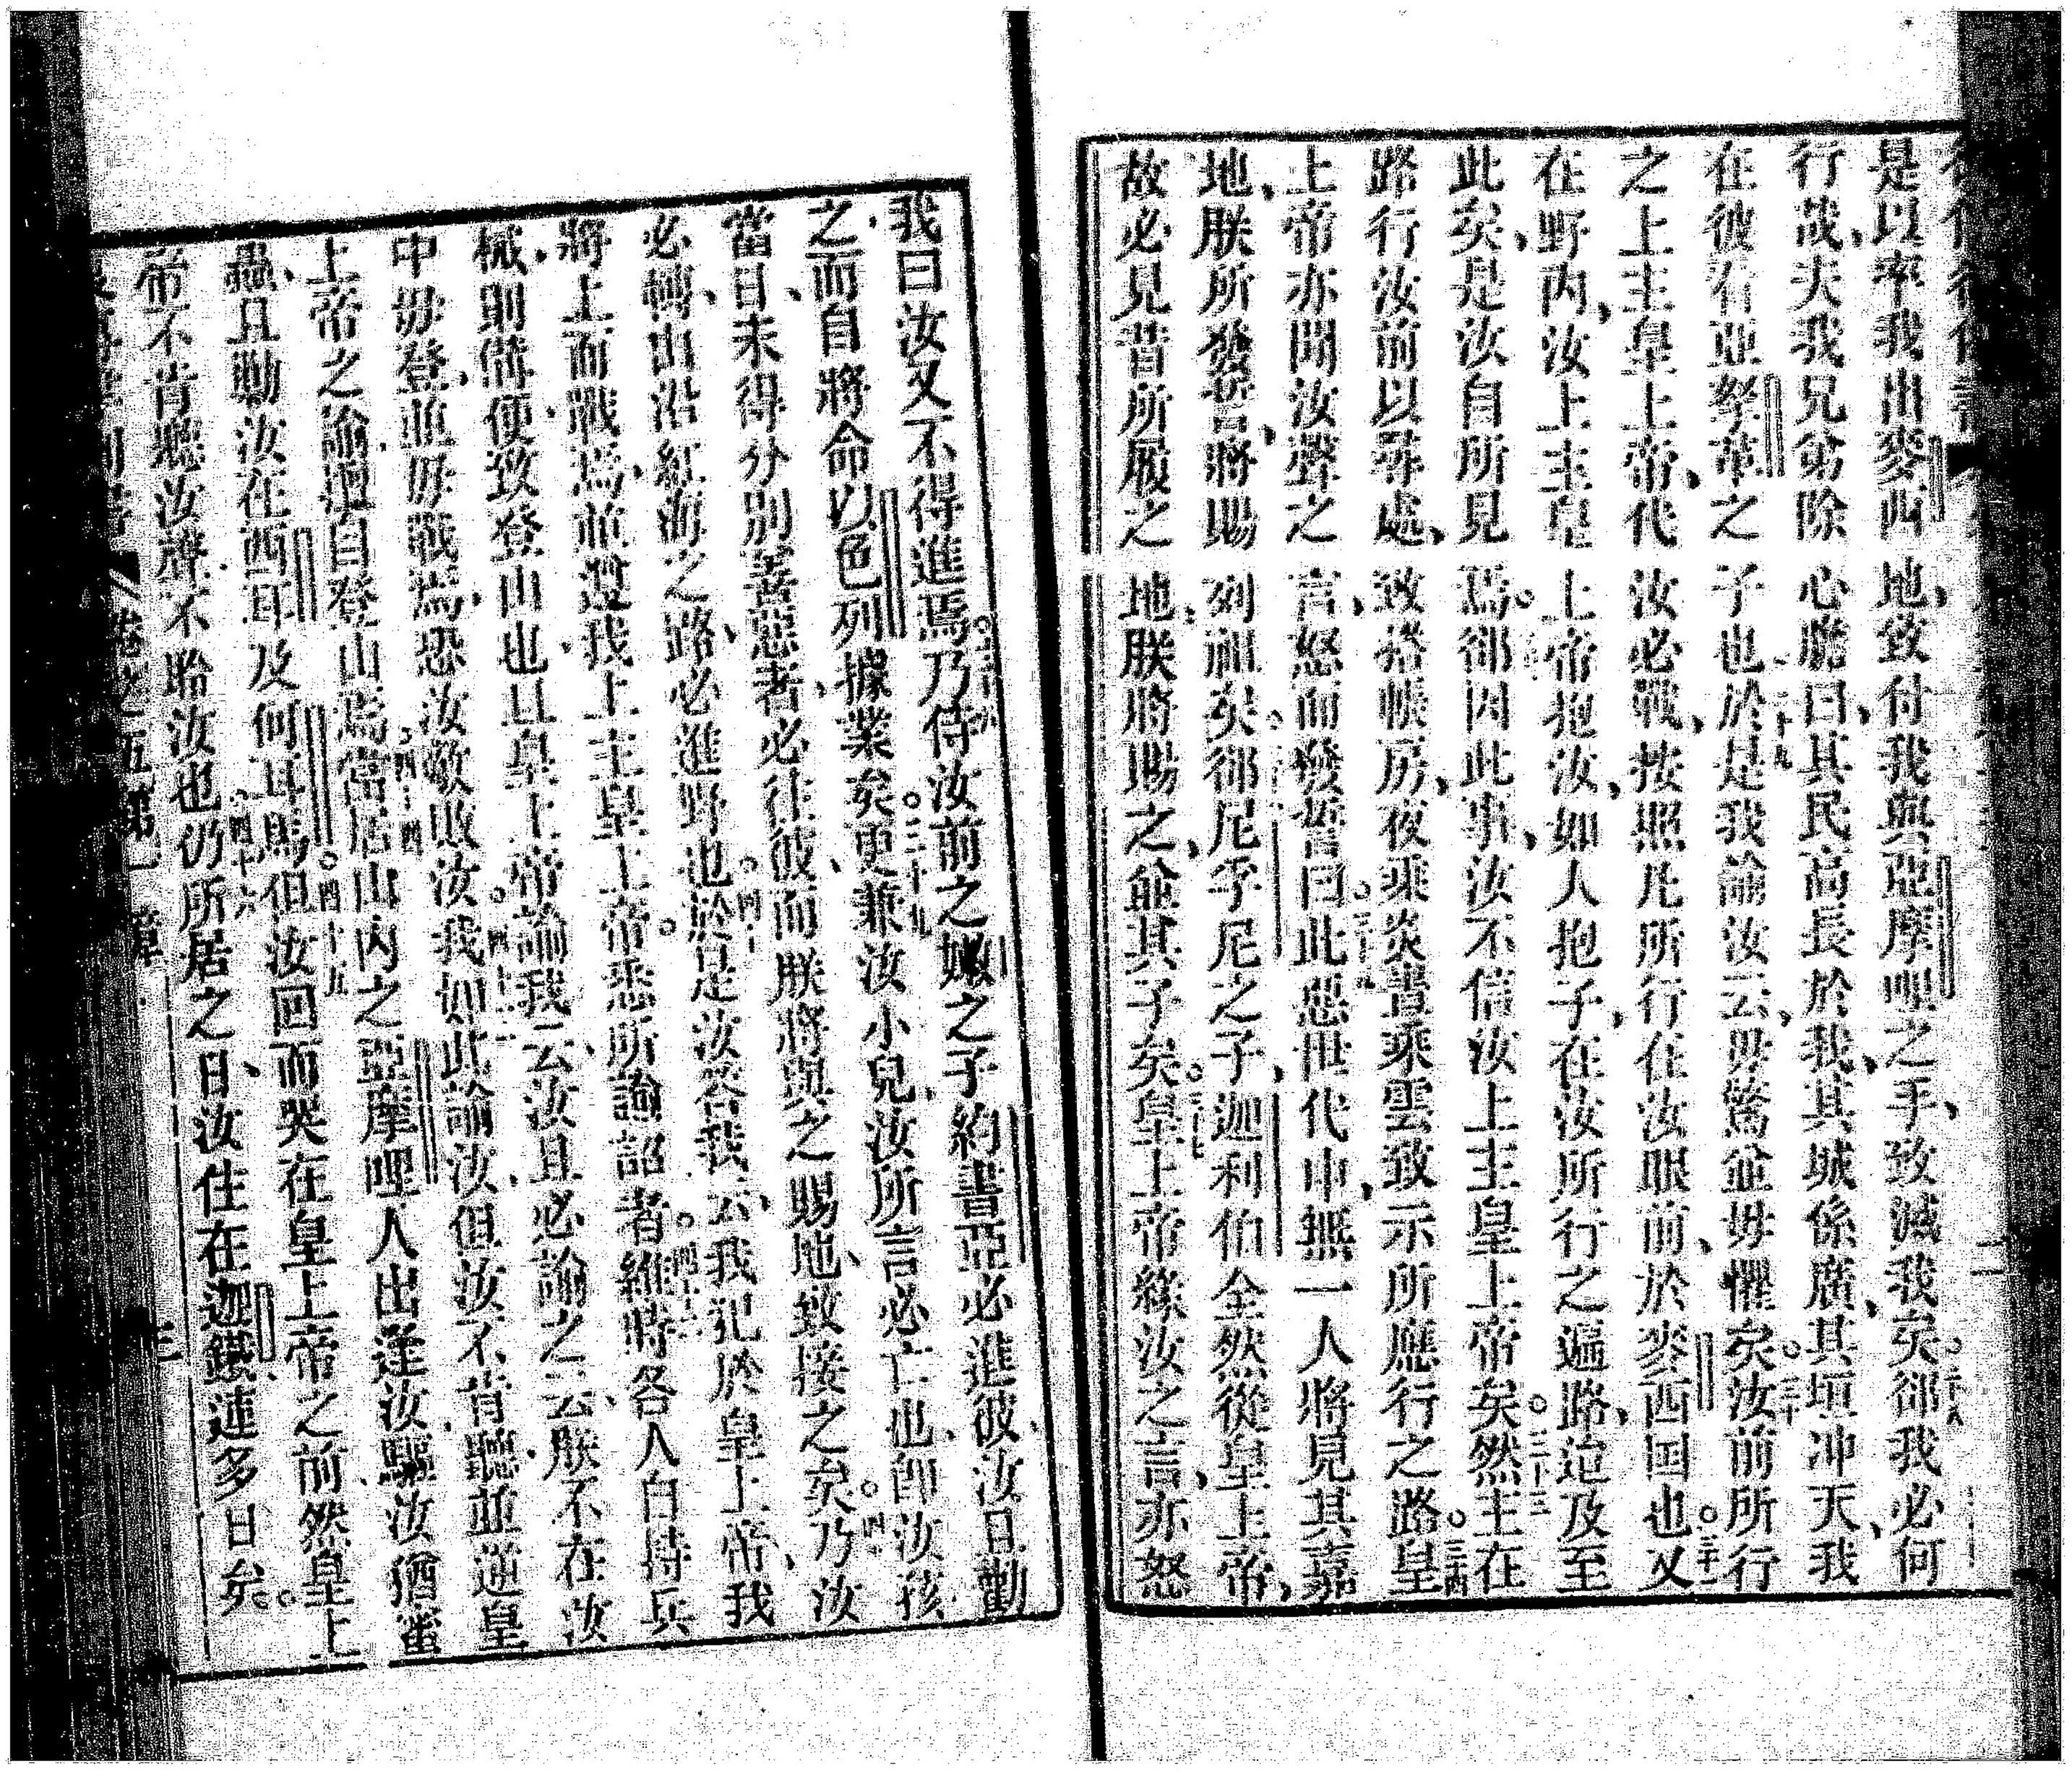 是以率我出麥西地、致付我與亞摩哩之手、致滅我矣。○二十八郤我必何
行哉、夫我兄弟除心膽曰、其民高長於我、其城係廣、其垣冲天、我
在彼有亞拏革之子也。二十九於是我諭汝云、毋驚並毋懼矣。○三十汝前所行
之上主皇上帝、代汝必戰、按照凡所行在汝眼前、於麥西国也。○三十一又
在野內、汝上主皇上帝抱汝、如人抱子、在汝所行之遍路、迨及至
此矣、是汝自所見焉。○郤因此事、汝不信汝上主皇上帝矣。○三十三然主在
路行汝前以尋處、致搭帳房、夜乘炎晝乘雲致示所應行之路。○三十四皇
上帝亦聞汝聲之言、怒而發誓曰、○三十五此惡世代中、無一人將見其嘉
地、朕所發誓、將賜列祖矣。○郤尼孚尼之子、迦利伯全然從皇上帝、
故必見昔所履之地、朕將賜之、並其子矣。○三十七皇上帝緣汝之言、亦怒
我曰汝又不得進焉。○三十八乃侍汝前之嫩之子約書亞必進彼、汝且勸
之、而自將命以色列據業矣。○三十九更兼汝小兒、汝所言必亡也、卽汝孩
當日、未得分別善惡者、必往彼、而朕將與之賜地、致接之矣。○四十乃汝
必轉、出沿紅海之路、必進野也。○四十一於是汝答我云、我犯於皇上帝、我
將上而戰焉、並遵我上主皇上帝悉所諭詔者。○維時各人自持兵
械、則僣便致登山也。○四十二且皇上帝諭我云、汝且必諭之云、朕不在汝
中毋登、並毋戰焉、恐汝敵敗汝。○四十三我如此諭汝、但汝不肯聽、並逆皇
上帝之諭、擅自登山焉。○四十四當居山內之亞摩哩人出逢汝、驅汝猶蜜
蟲、且勦汝在西耳及何耳馬。○四十五但汝回而哭在皇上帝之前、然皇上
帝不肯聽汝聲、不聆汝也。○四十六仍所居之日、汝住在迦鐵連多日矣。○
卷之五 第一章 三
二